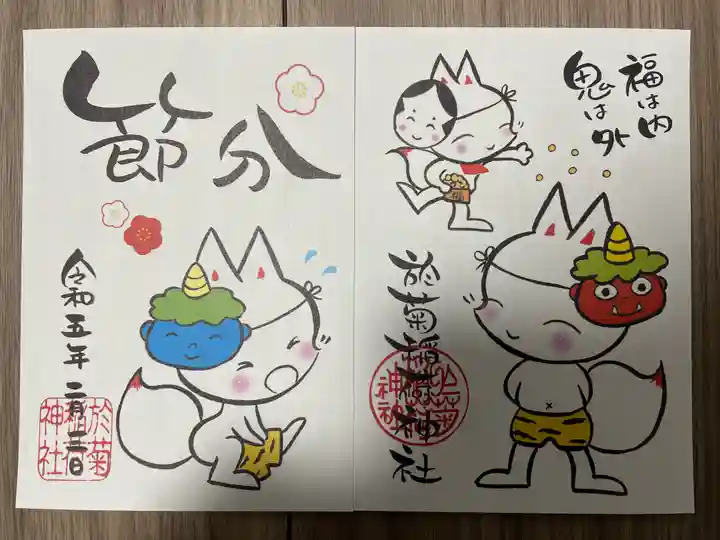 節分
令和五年二月三日
於菊稲荷神社
福は内
鬼は外
於菊稲荷神社
於菊稲荷神社